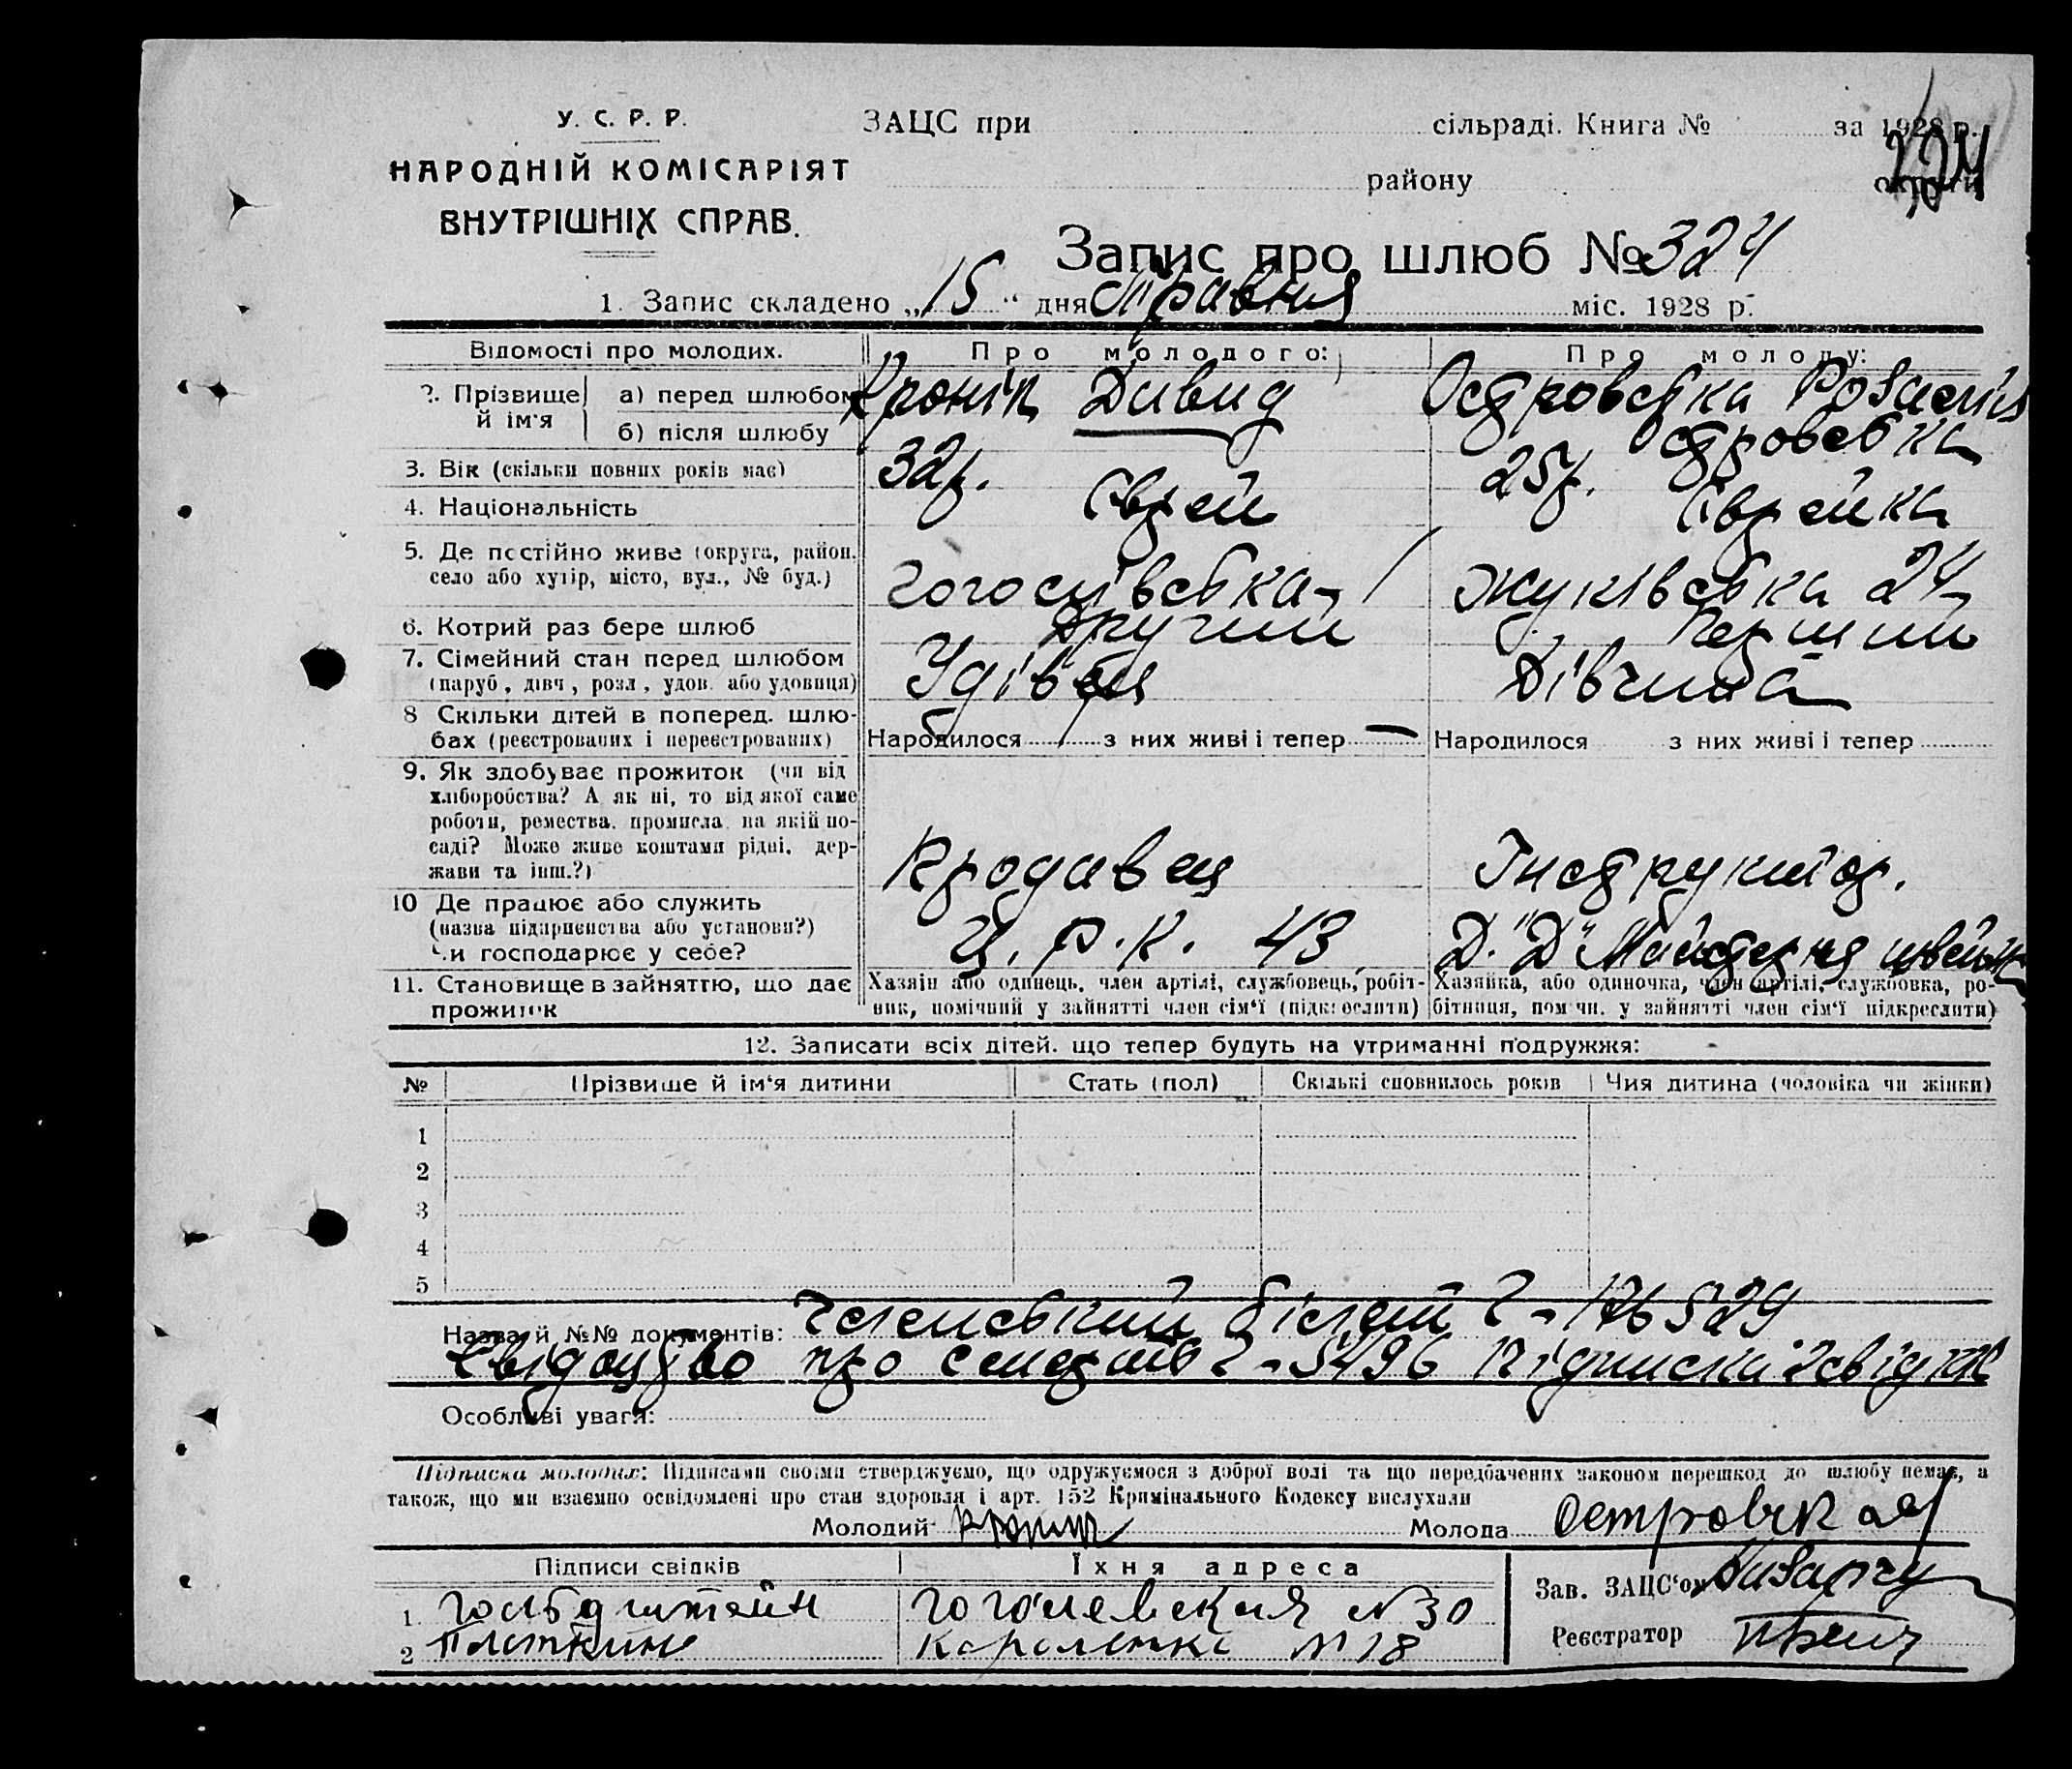 У. С. Р. Р.
НАРОДНІЙ КОМІСАРІЯТ
ВНУТРІШНІХ СПРАВ.
ЗАЦС при сільраді. Книга № за 1928 р.
району округи
Запис про шлюб № 324
1. Запис складено „15“ дня Травня міс. 1928 р.
Відомості про молодих. Про молодого: Про молоду:
2. Прізвище й ім'я а) перед шлюбом Кронік Давид Островська Розалія
б) після шлюбу Островська
3. Вік (скільки повних років має) 32 р. 25 р.
4. Національність Єврей Єврейка
5. Де постійно живе (округа, район, село або хутір, місто, вул., № буд.) Жуківська 24
6. Котрий раз бере шлюб Другий Перший
7. Сімейний стан перед шлюбом (паруб., дівч., розл., удов. або удовиця) Удівець Дівчина
8 Скільки дітей в поперед. шлюбах (реєстрованих і нереєстрованих) Народилося з них живі і тепер — Народилося з них живі і тепер
9. Як здобуває прожиток (чи від хліборобства? А як ні, то від якої саме роботи, ремества, промисла, на якій посаді? Може живе коштами рідні, держави та інш.?) Продавец Інструктор.
10 Де працює або служить (назва підприємства або установи?) Чи господарює у себе? Ц. Р. К. 43 Д. "Д" Майстерня
11. Становище в зайняттю, що дає прожиток Хазяїн або одинець, член артілі, службовець, робітник, помічний у зайнятті член сім'ї (підкреслити) Хазяйка, або одиночка, член артілі, службовка, робітниця, помічн. у зайнятті член сім'ї підкреслити)
12. Записати всіх дітей, що тепер будуть на утриманні подружжя:
№ Прізвище й ім'я дитини Стать (пол) Скількі сповнилось років Чия дитина (чоловіка чи жінки)
1
2
3
4
5
Назва й №№ документів: Членський білет
Свідоцтво про смерть 5496 Підписка
Особливі уваги:
Підписка молодих: Підписами своїми стверджуємо, що одружуємося з доброї волі та що передбачених законом перешкод до шлюбу немає, а
також, що ми взаємно освідомлені про стан здоровля і арт. 152 Кримінального Кодексу вислухали
Молодий Кроник Молода Островская
Підписи свідків Їхня адреса Зав. ЗАЦС'ом
1 Гольдштейн Гоголевская № 30
2 Короленко № 18 Реєстратор